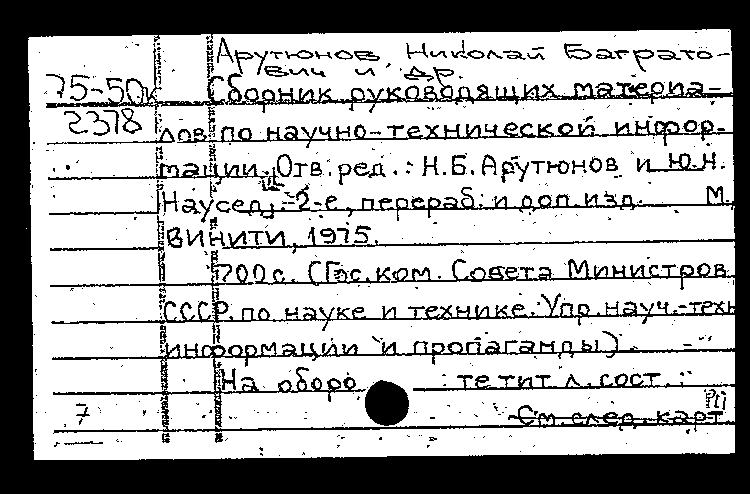 Арутюнов, Николай Баграто-
вич и др.
75-50к Сборник руководящих материа-
2378 лов по научно-технической инфор-
мации. Отв. ред.: Н.Б. Арутюнов и Ю.Н.
Наусед, -2-е, перераб. и доп. изд. М.,
ВИНИТИ, 1975.
700с. (Гос. ком. Совета Министров
СССР. по науке и технике. Упр. науч.-техн
информации и пропаганды).
На оборо те тит л. сост.:
7 См. след. карт